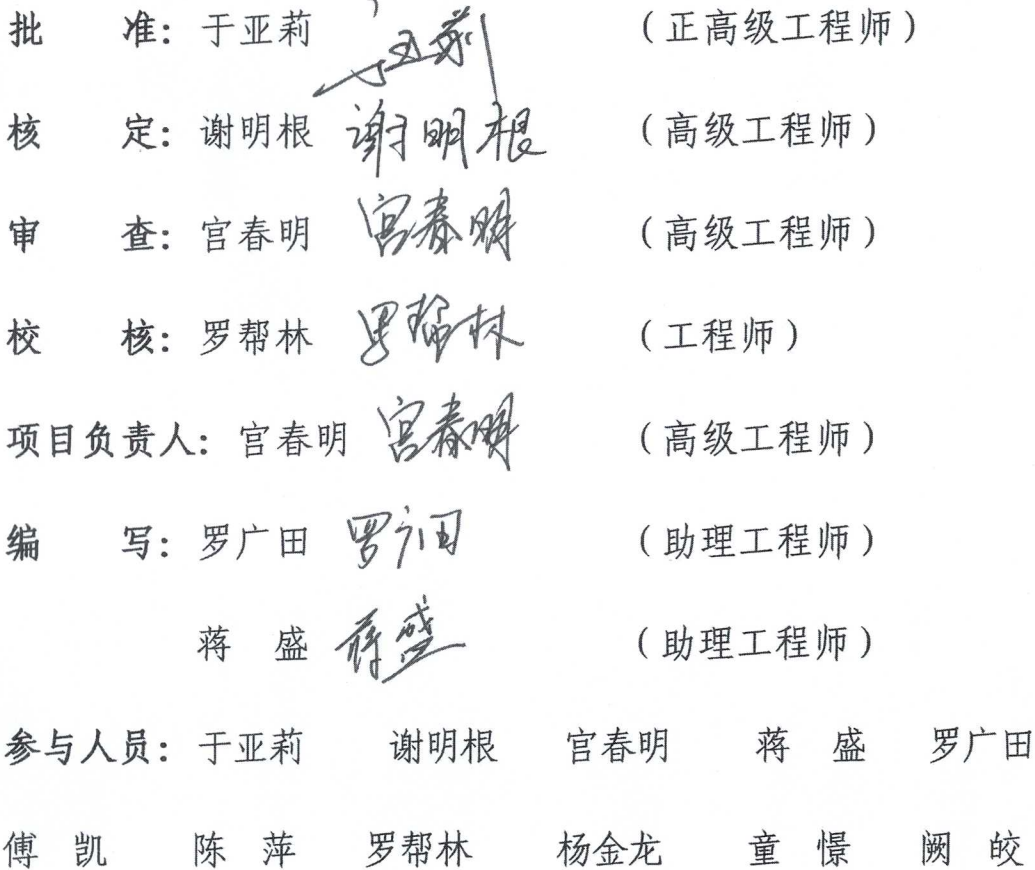 批 准：于亚莉 于亚莉 （正高级工程师）
核 定：谢明根 谢明根 （高级工程师）
审 查：宫春明 宫春明 （高级工程师）
校 核：罗帮林 罗帮林 （工程师）
项目负责人：宫春明 宫春明 （高级工程师）
编 写：罗广田 罗广田 （助理工程师）
蒋 盛 蒋盛 （助理工程师）
参与人员：于亚莉 谢明根 宫春明 蒋 盛 罗广田
傅 凯 陈 萍 罗帮林 杨金龙 童 憬 阙 皎